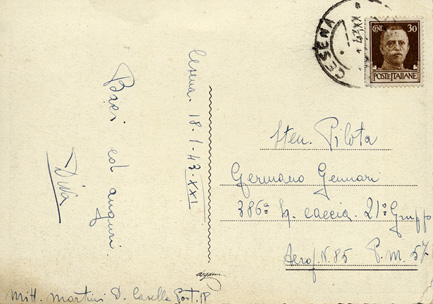 Cesena 18-1-43-XXI
Baci ed auguri
CESENA
CENT. 30
POSTE ITALIANE
Sten. Pilota
Germano Gennari
386ª Sq. caccia 21º Gruppo
Aerop. N. 85 P.M. 57
Mitt. Martini D. Casella Post. 18